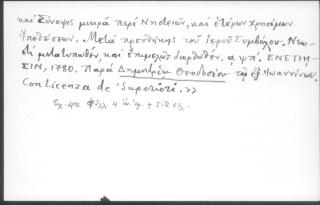 καὶ Σύνοψις μικρὰ περὶ Νηστειῶν, καὶ ἑτέρων χρησίμων
Ὑποθέσεων. Μετὰ προσθήκης τοῦ Ἱεροῦ Συμβόλου. Νεω-
στὶ μετατυπωθέν, καὶ ἐπιμελῶς διορθωθέν. α,ψπ'. ΕΝΕΤΙΗ-
ΣΙΝ, 1780. Παρὰ Δημητρίῳ Θεοδοσίου τῷ ἐξ Ἰωαννίνων.
Con Licenza de' Superiori. »
Σχ. 4ον φύλλ. 4